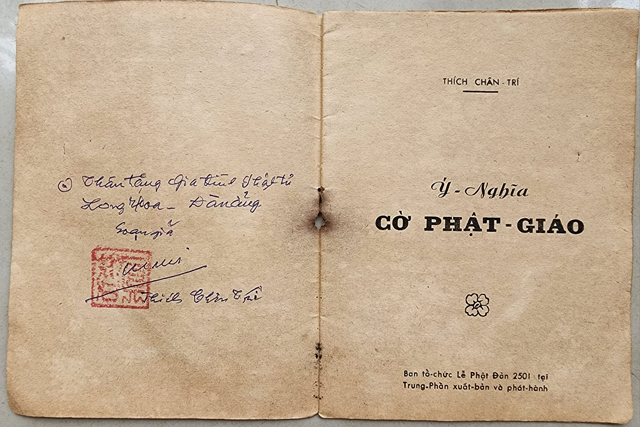 Thân tặng Gia đình Phật tử
Long Hoa - Đà nẵng
Soạn giả
Thích Chân Trí
THÍCH CHÂN-TRÍ
Ý-Nghĩa
CỜ PHẬT-GIÁO
Ban tổ-chức Lễ Phật Đản 2501 tại
Trung-Phần xuất-bản và phát-hành